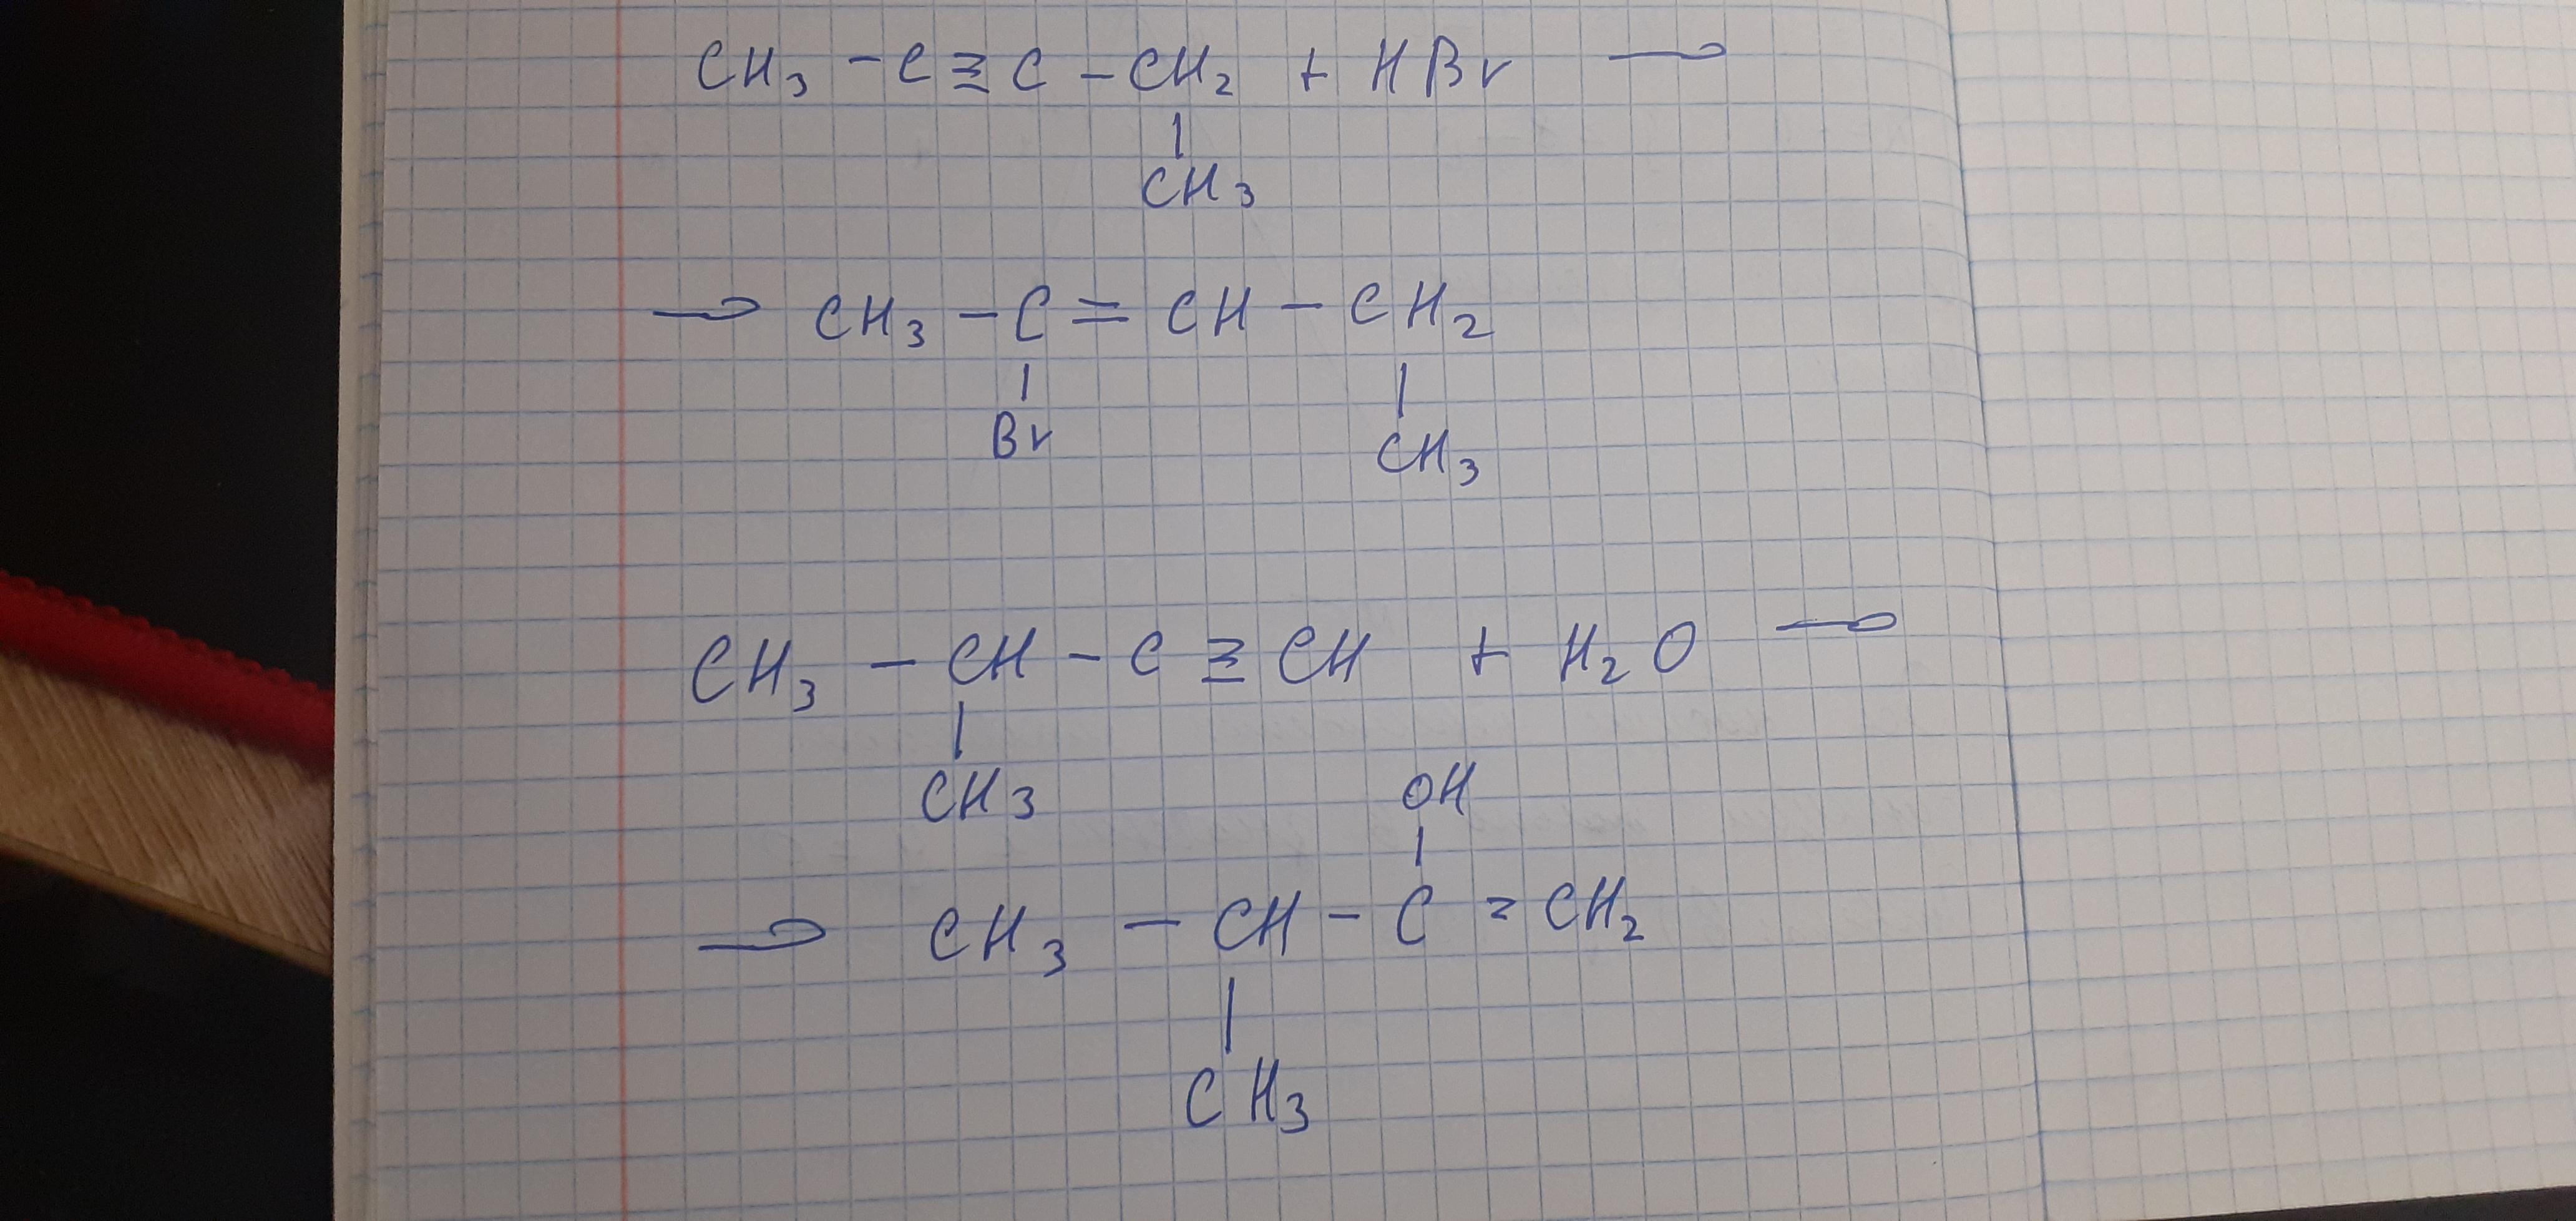 CH3 - C ≡ C - CH2 + HBr →
|
CH3
→ CH3 - C = CH - CH2
| |
Br CH3
CH3 - CH - C ≡ CH + H2O →
|
CH3 OH
|
→ CH3 - CH - C = CH2
|
CH3